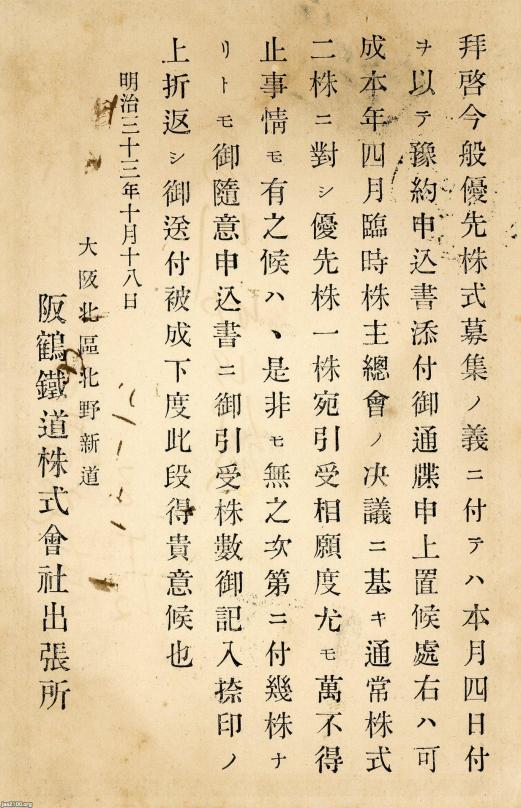 拜啓今般優先株式募集ノ義ニ付テハ本月四日付
ヲ以テ豫約申込書添付御通牒申上置候處右ハ可
成本年四月臨時株主總會ノ决議ニ基キ通常株式
二株ニ對シ優先株一株宛引受相願度尤モ萬不得
止事情モ有之候ハヽ是非モ無之次第ニ付幾株ナ
リトモ御隨意申込書ニ御引受株數御記入捺印ノ
上折返シ御送付被成下度此段得貴意候也
明治三十三年十月十八日
大阪北區北野新道
阪鶴鐵道株式會社出張所
jaa2100.org